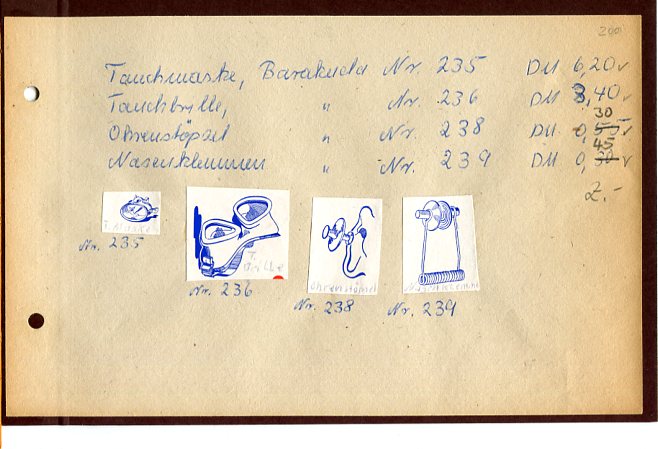 200
Tauchmaske, Barakuda Nr. 235 DM 6,20 ✓
Tauchbrille, " Nr. 236 DM 3,40 ✓
30
Ohrenstöpsel " Nr. 238 DM 0, ✓
45
Nasenklemmen " Nr. 239 DM 0, ✓
2.-
T. Maske
T. Brille
Ohrenstöpsel
Nasenklemme
Nr. 235
Nr. 236
Nr. 238
Nr. 239